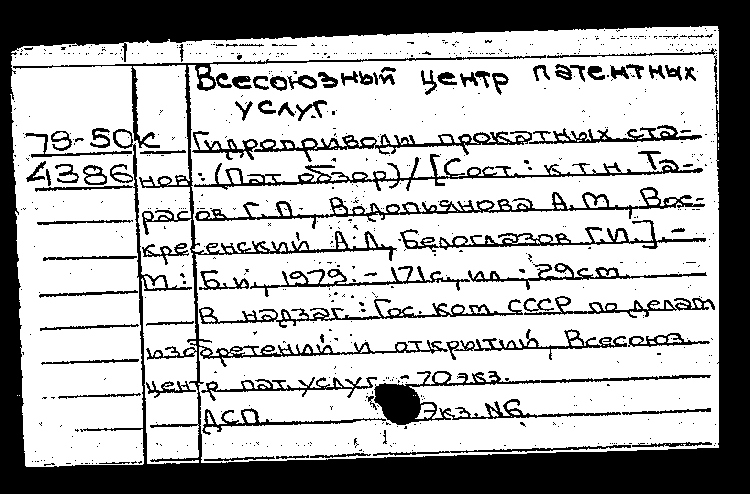 Всесоюзный центр патентных
услуг.
79-50к Гидроприводы прокатных ста-
4386 нов: (Пат. обзор) / [Сост.: к.т.н. Та-
расов Г.П., Водопьянова А.М., Вос-
кресенский А.Л., Белоглазов Г.И.]. -
М.: Б.и., 1979. - 171с., ил.; 29см.
В надзаг.: Гос. ком. СССР по делам
изобретений и открытий, Всесоюз.
центр пат. услуг. - 70 экз.
ДСП. Экз. N6.